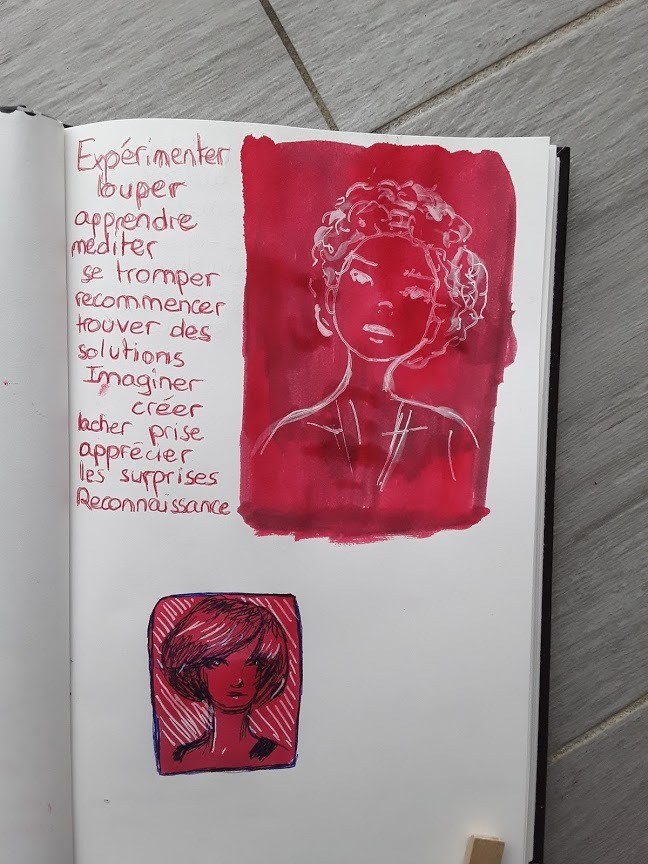 Expérimenter
louper
apprendre
méditer
se tromper
recommencer
trouver des
solutions
Imaginer
créer
lacher prise
apprécier
les surprises
Reconnaissance